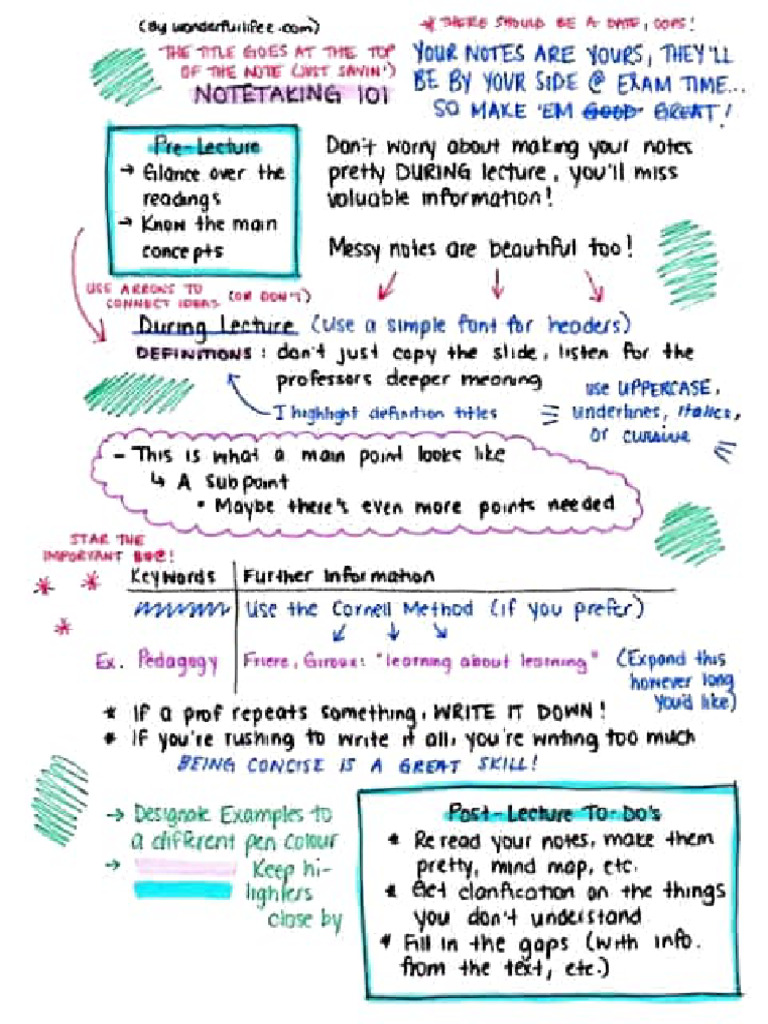 (By wonderfurlifee.com)
* THERE SHOULD BE A DATE, OOPS!
THE TITLE GOES AT THE TOP
OF THE NOTE (JUST SAYIN')
NOTETAKING 101
YOUR NOTES ARE YOURS, THEY'LL
BE BY YOUR SIDE @ EXAM TIME...
SO MAKE 'EM GOOD GREAT!
Pre-Lecture
→ Glance over the
readings
→ Know the main
concepts
Don't worry about making your notes
pretty DURING lecture, you'll miss
valuable information!
Messy notes are beautiful too!
USE ARROWS TO
CONNECT IDEAS (OR DON'T)
During Lecture (Use a simple font for headers)
DEFINITIONS: don't just copy the slide, listen for the
professors deeper meaning
I highlight definition titles
use UPPERCASE,
underlines, italics,
or cursive
- This is what a main point looks like
↳ A subpoint
• Maybe there's even more points needed
STAR THE
IMPORTANT
Keywords | Further Information
Use the Cornell Method (if you prefer)
Ex. Pedagogy
Friere, Giroux: "learning about learning"
(Expand this
however long
you'd like)
* If a prof repeats something, WRITE IT DOWN!
* If you're rushing to write it all, you're writing too much
BEING CONCISE IS A GREAT SKILL!
→ Designate Examples to
a different pen colour
→ Keep hi-
lighters
close by
Post-Lecture To-Do's
* Reread your notes, make them
pretty, mind map, etc.
* Get clarification on the things
you don't understand
* Fill in the gaps (with info.
from the text, etc.)